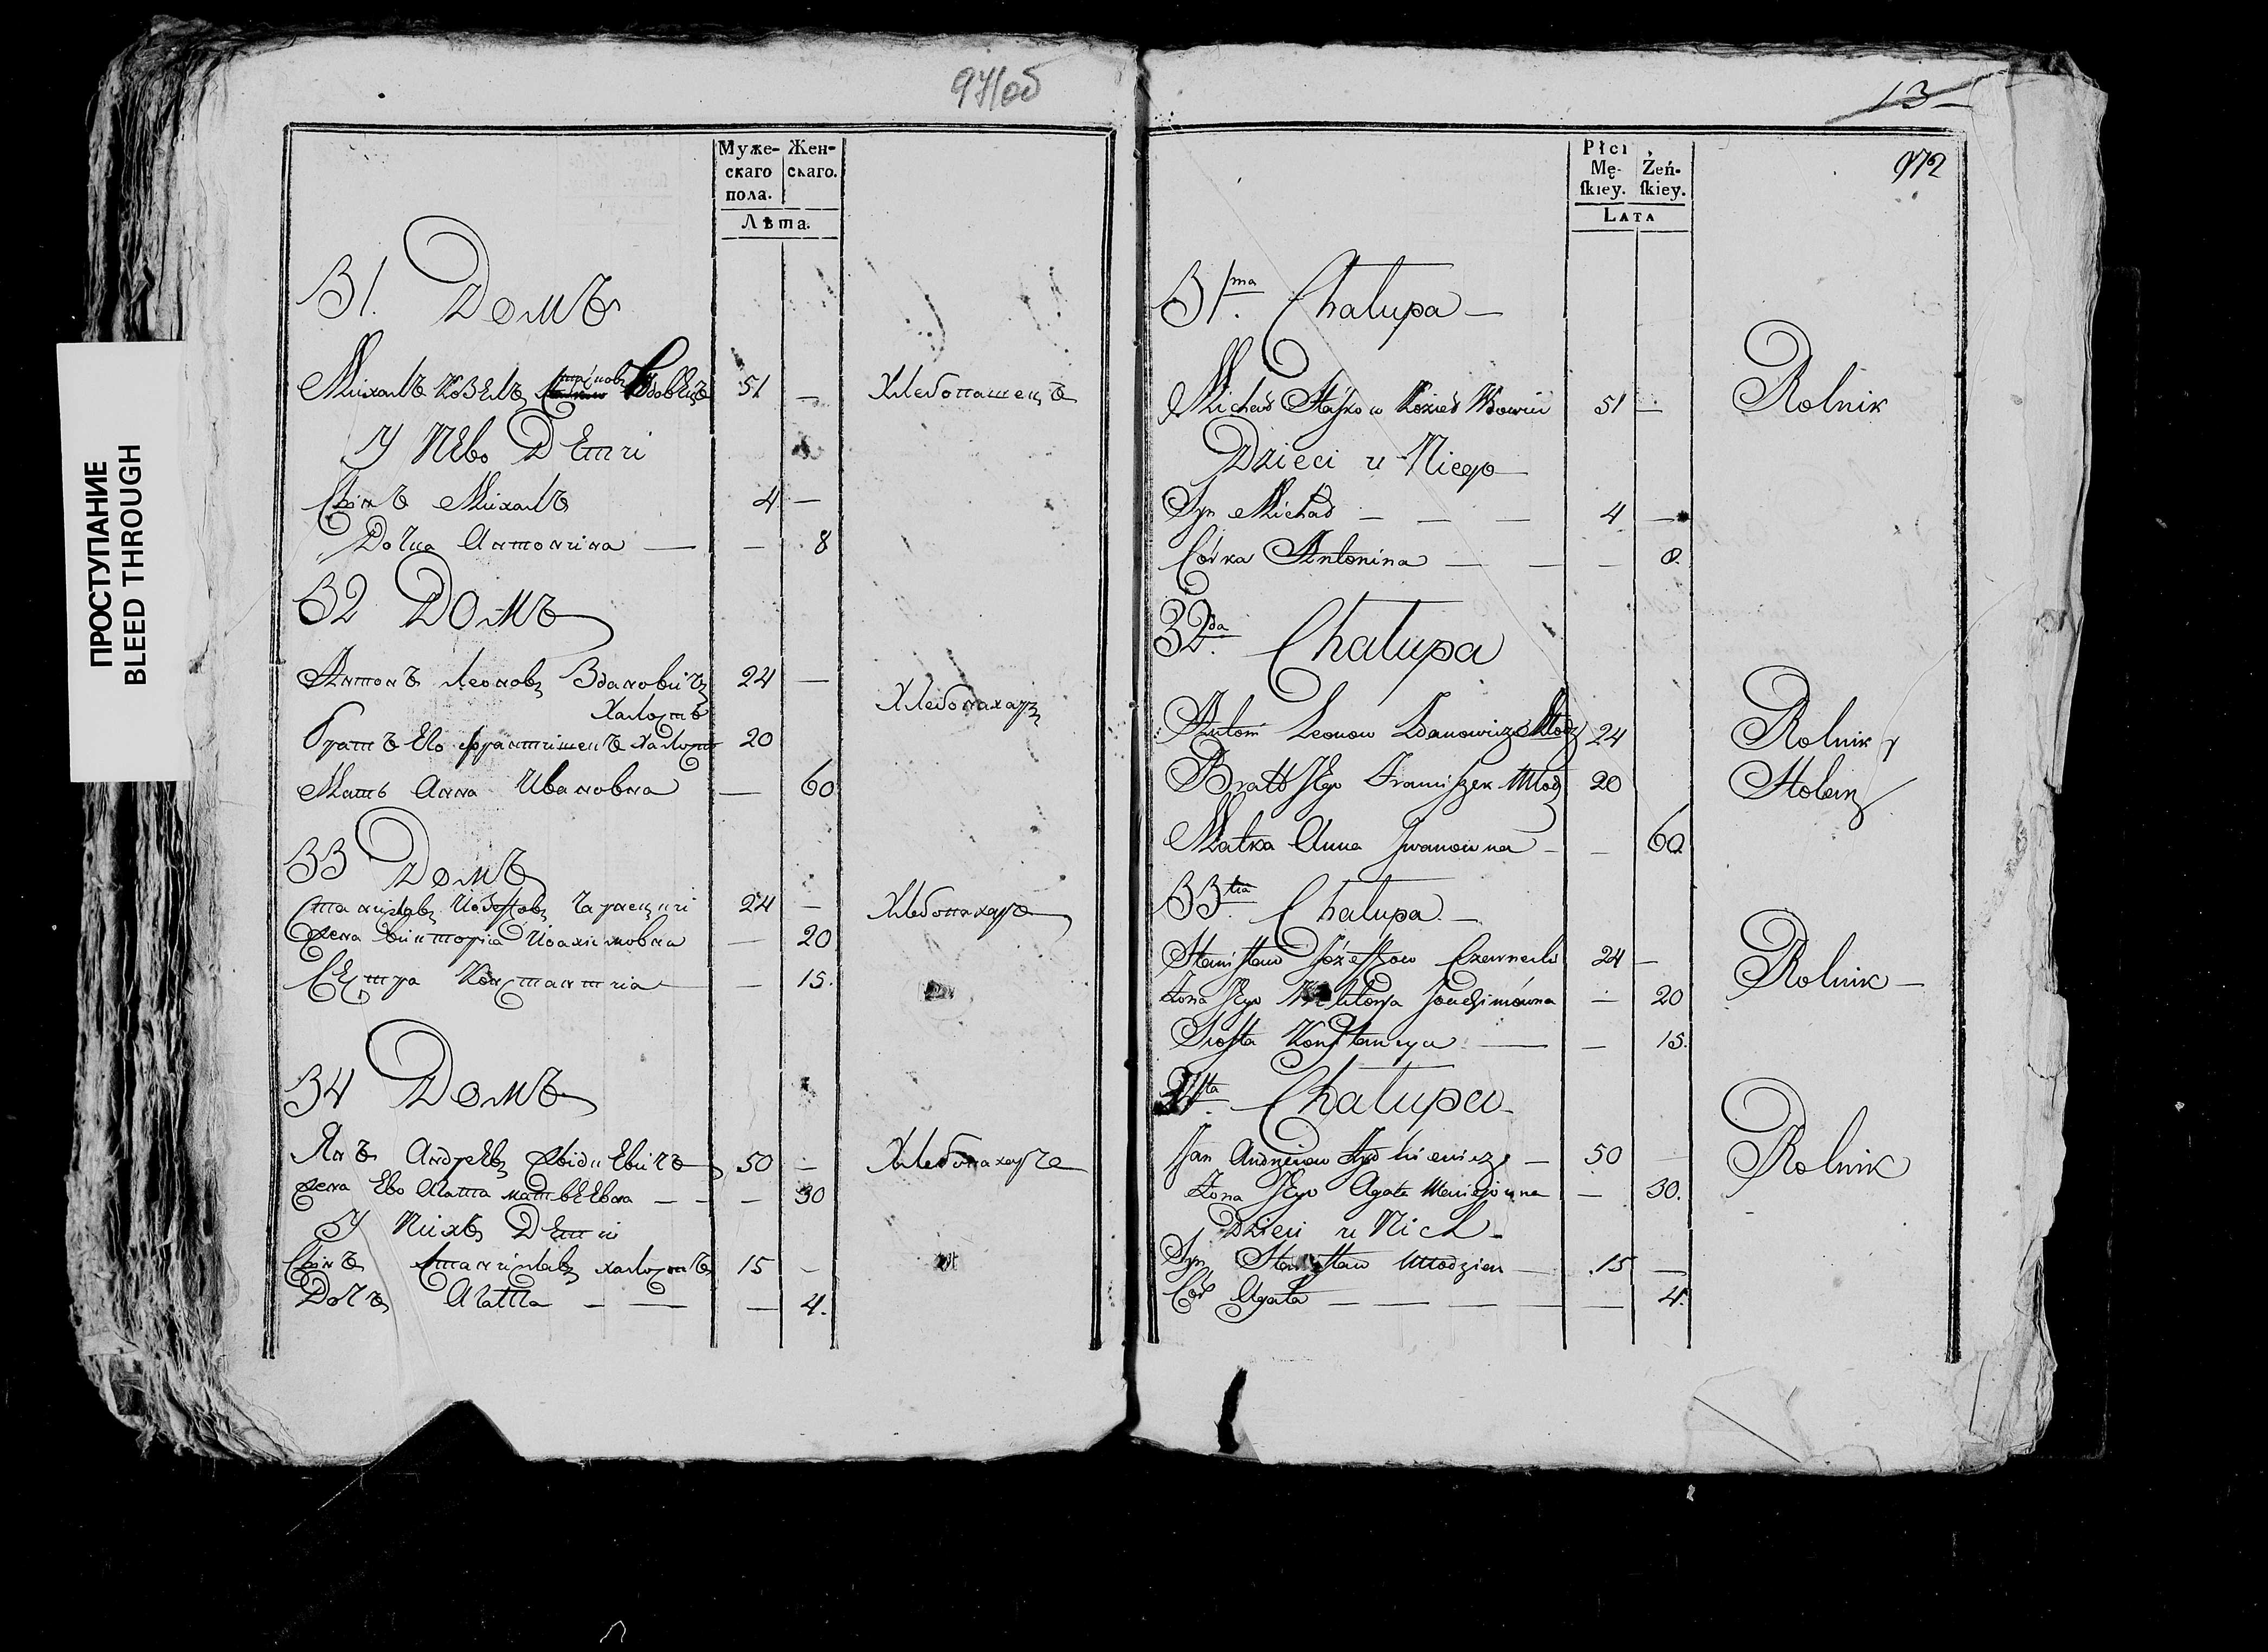 971об
Муже- Жен-
скаго скаго.
пола.
Лѣта.
31. Домъ
Михалъ Козелъ Вдовецъ 51 — Хлебопашецъ
У Нево Дети
Сынъ Михалъ 4 —
Дочка Антонина — — 8
32 Домъ
Антонъ Леоновъ Здановичъ 24 —
Халостъ Хлебопахарь
братъ Ево Франтишекъ Халостъ 20
Мать Анна Ивановна — 60
33 Домъ
Станиславъ Чарнецкі 24 — Хлебопахаръ
Жена Викторіа Иоахимовна — 20
Сестра Константиа — 15.
34 Домъ
Янъ Андреевъ 50 — Хлебопахарче
Жена Ево Агата матвеевна — — — 30
У Нихъ Дети
Сынъ Станиславъ халостъ 15 —
Дочъ Агата — — — 4.
13
972
Płci
Mę- Żeń-
skiey. skiey.
Lata
31ma Chalupa —
Michał Staśkow Kozieł Wdowiec 51 — Rolnik
Dzieci u Niego
Syn Michał — — — 4 —
Córka Antonina — — — 8.
32da Chalupa
Antoni Leonow Zdanowicz Młodz 24 Rolnik
Bratt Jego Franciszek Młodz 20 Stolarz
Matka Anna Iwanowna — — 60
33tia Chalupa —
Stanisław Józefow Czarnecki 24 — Rolnik —
Żona Jego Wiktorya Joachimówna — 20
Siostra Konstancya — — 15.
34ta Chalupa
Jan Andrzeiow — 50 — Rolnik
Żona Jego Agata Maciejowna — 30.
Dzieci u Nich
Syn Stanisław Młodzien — 15 —
Cór Agata — — — — — 4.
ПРОСТУПАНИЕ
BLEED THROUGH